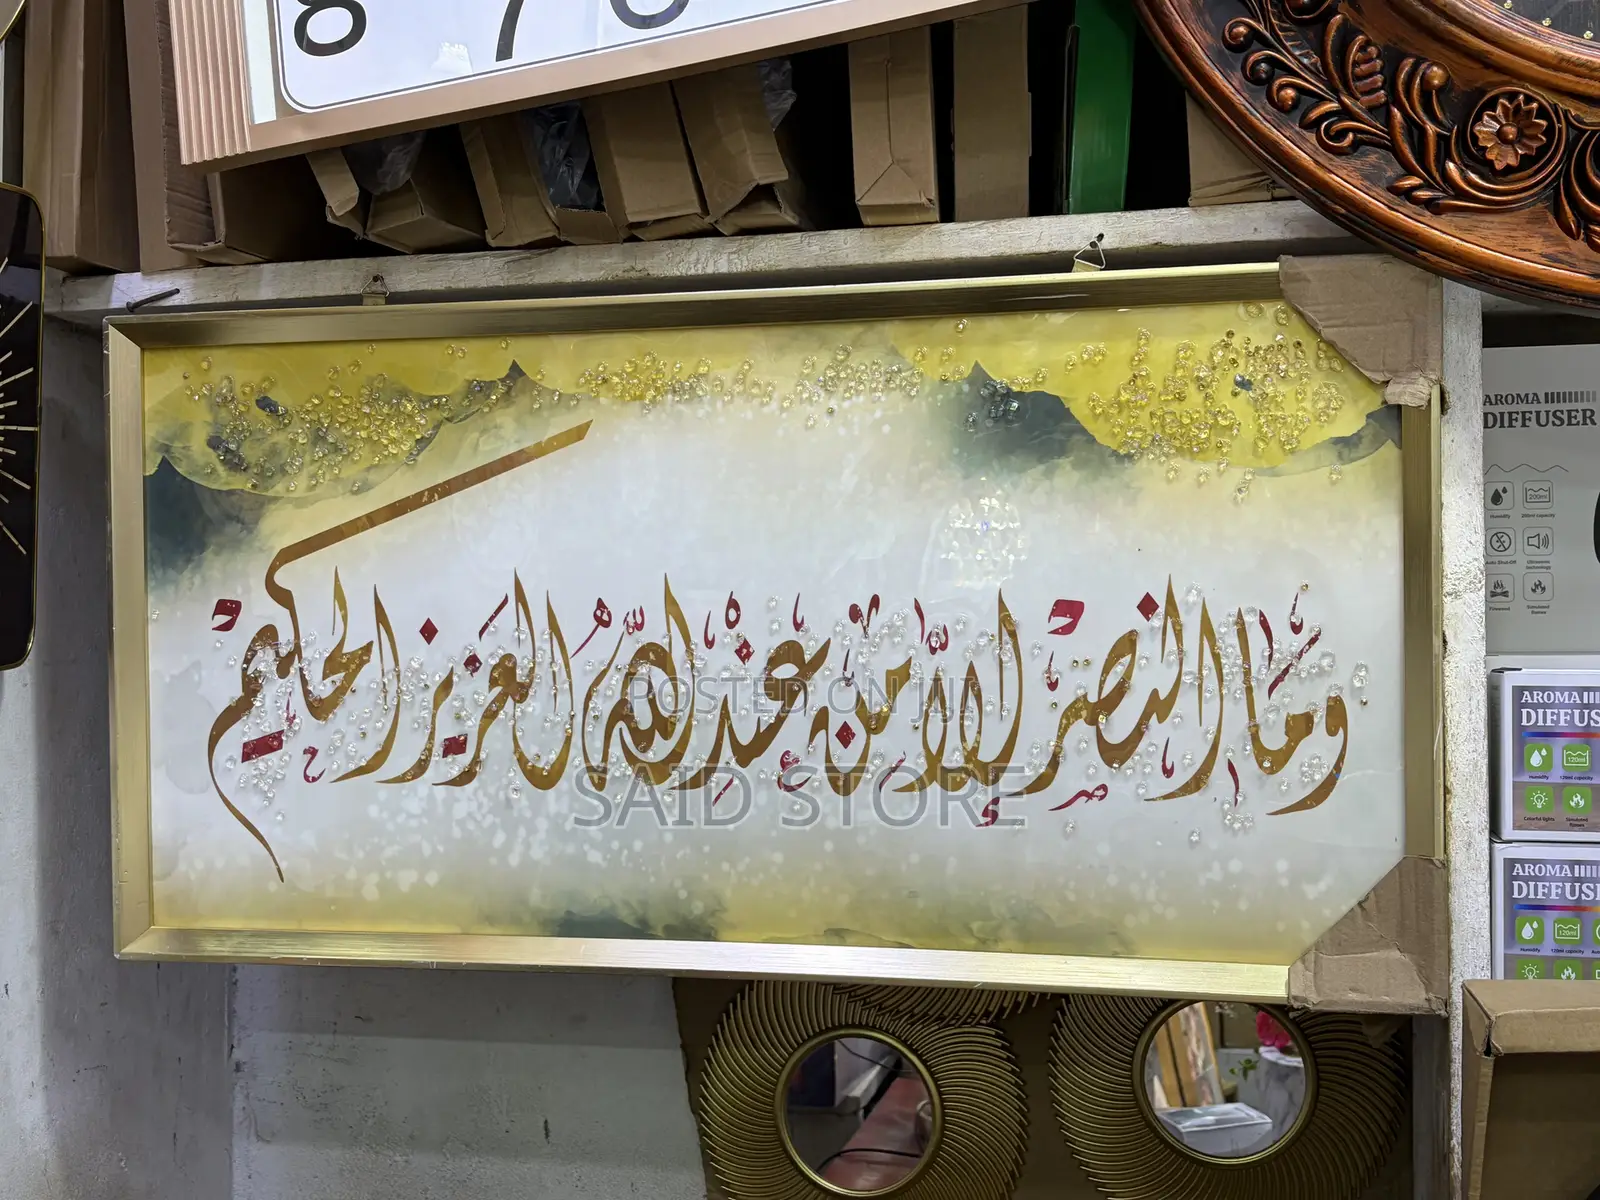 8 7 6
وَمَا النَّصْرُ إِلَّا مِنْ عِنْدِ اللَّهِ الْعَزِيزِ الْحَكِيمِ
POSTED ON JIJI
SAID STORE
AROMA
DIFFUSER
200ml
Humidify
200ml capacity
Auto Shut-Off
Ultrasonic technology
Simulated flames
AROMA
DIFFUS
120ml
Humidify
120ml capacity
Colorful lights
Simulated flames
AROMA
DIFFUSE
120ml
Humidify
120ml capacity